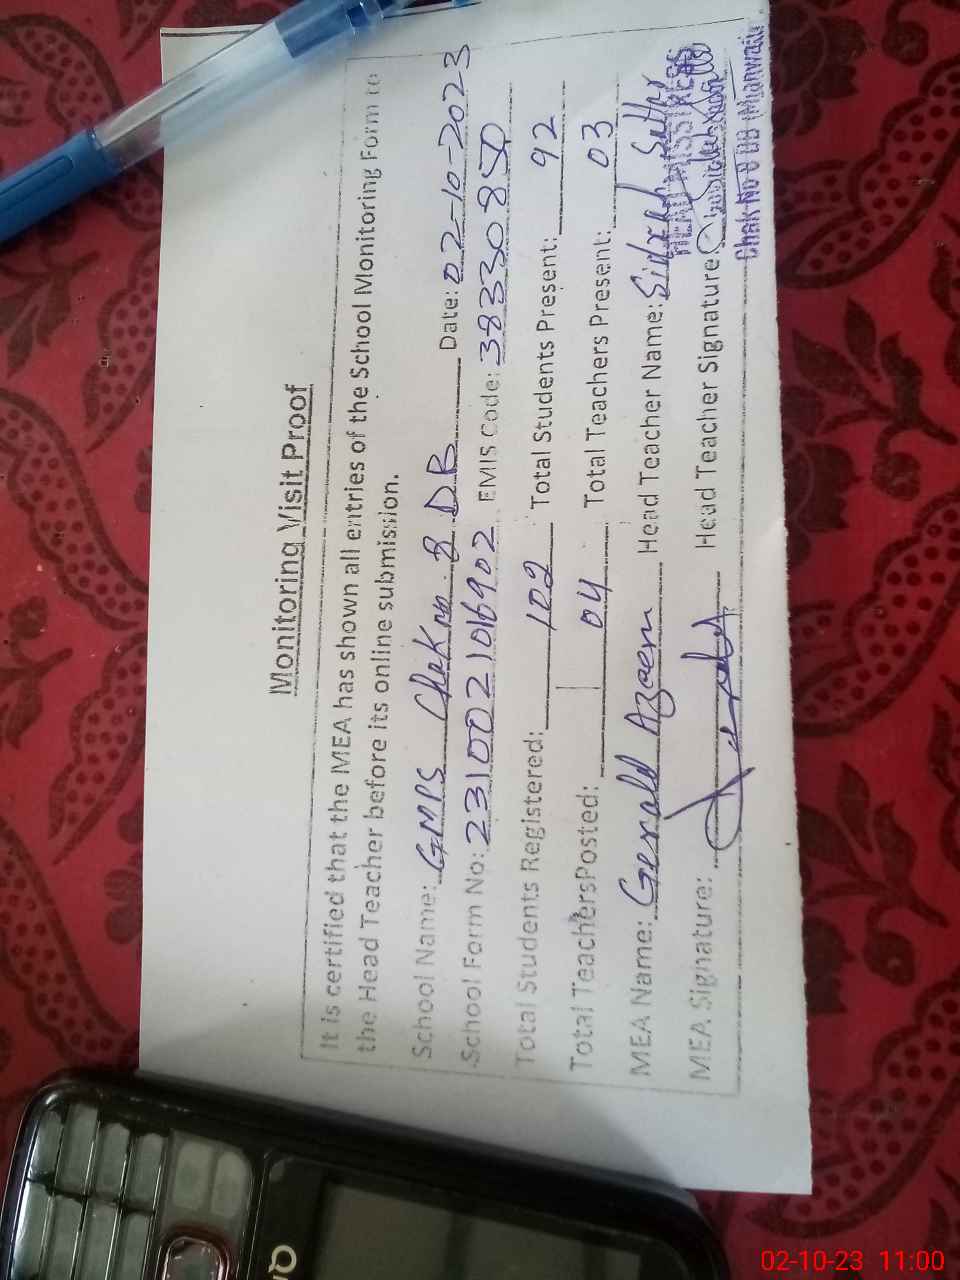 Monitoring Visit Proof
It is certified that the MEA has shown all entries of the School Monitoring Form to
the Head Teacher before its online submission.
School Name: GMPS Chak No. 8 DB Date: 02-10-2023
School Form No: 2310021016902 EMIS Code: 38330850
Total Students Registered: 102 Total Students Present: 92
Total TeachersPosted: 04 Total Teachers Present: 03
MEA Name: Gerald Azeem Head Teacher Name: Sidrah
HEAD MISTRESS
MEA Signature: Head Teacher Signature:
Chak No 8 DB (Mianwali)
02-10-23 11:00